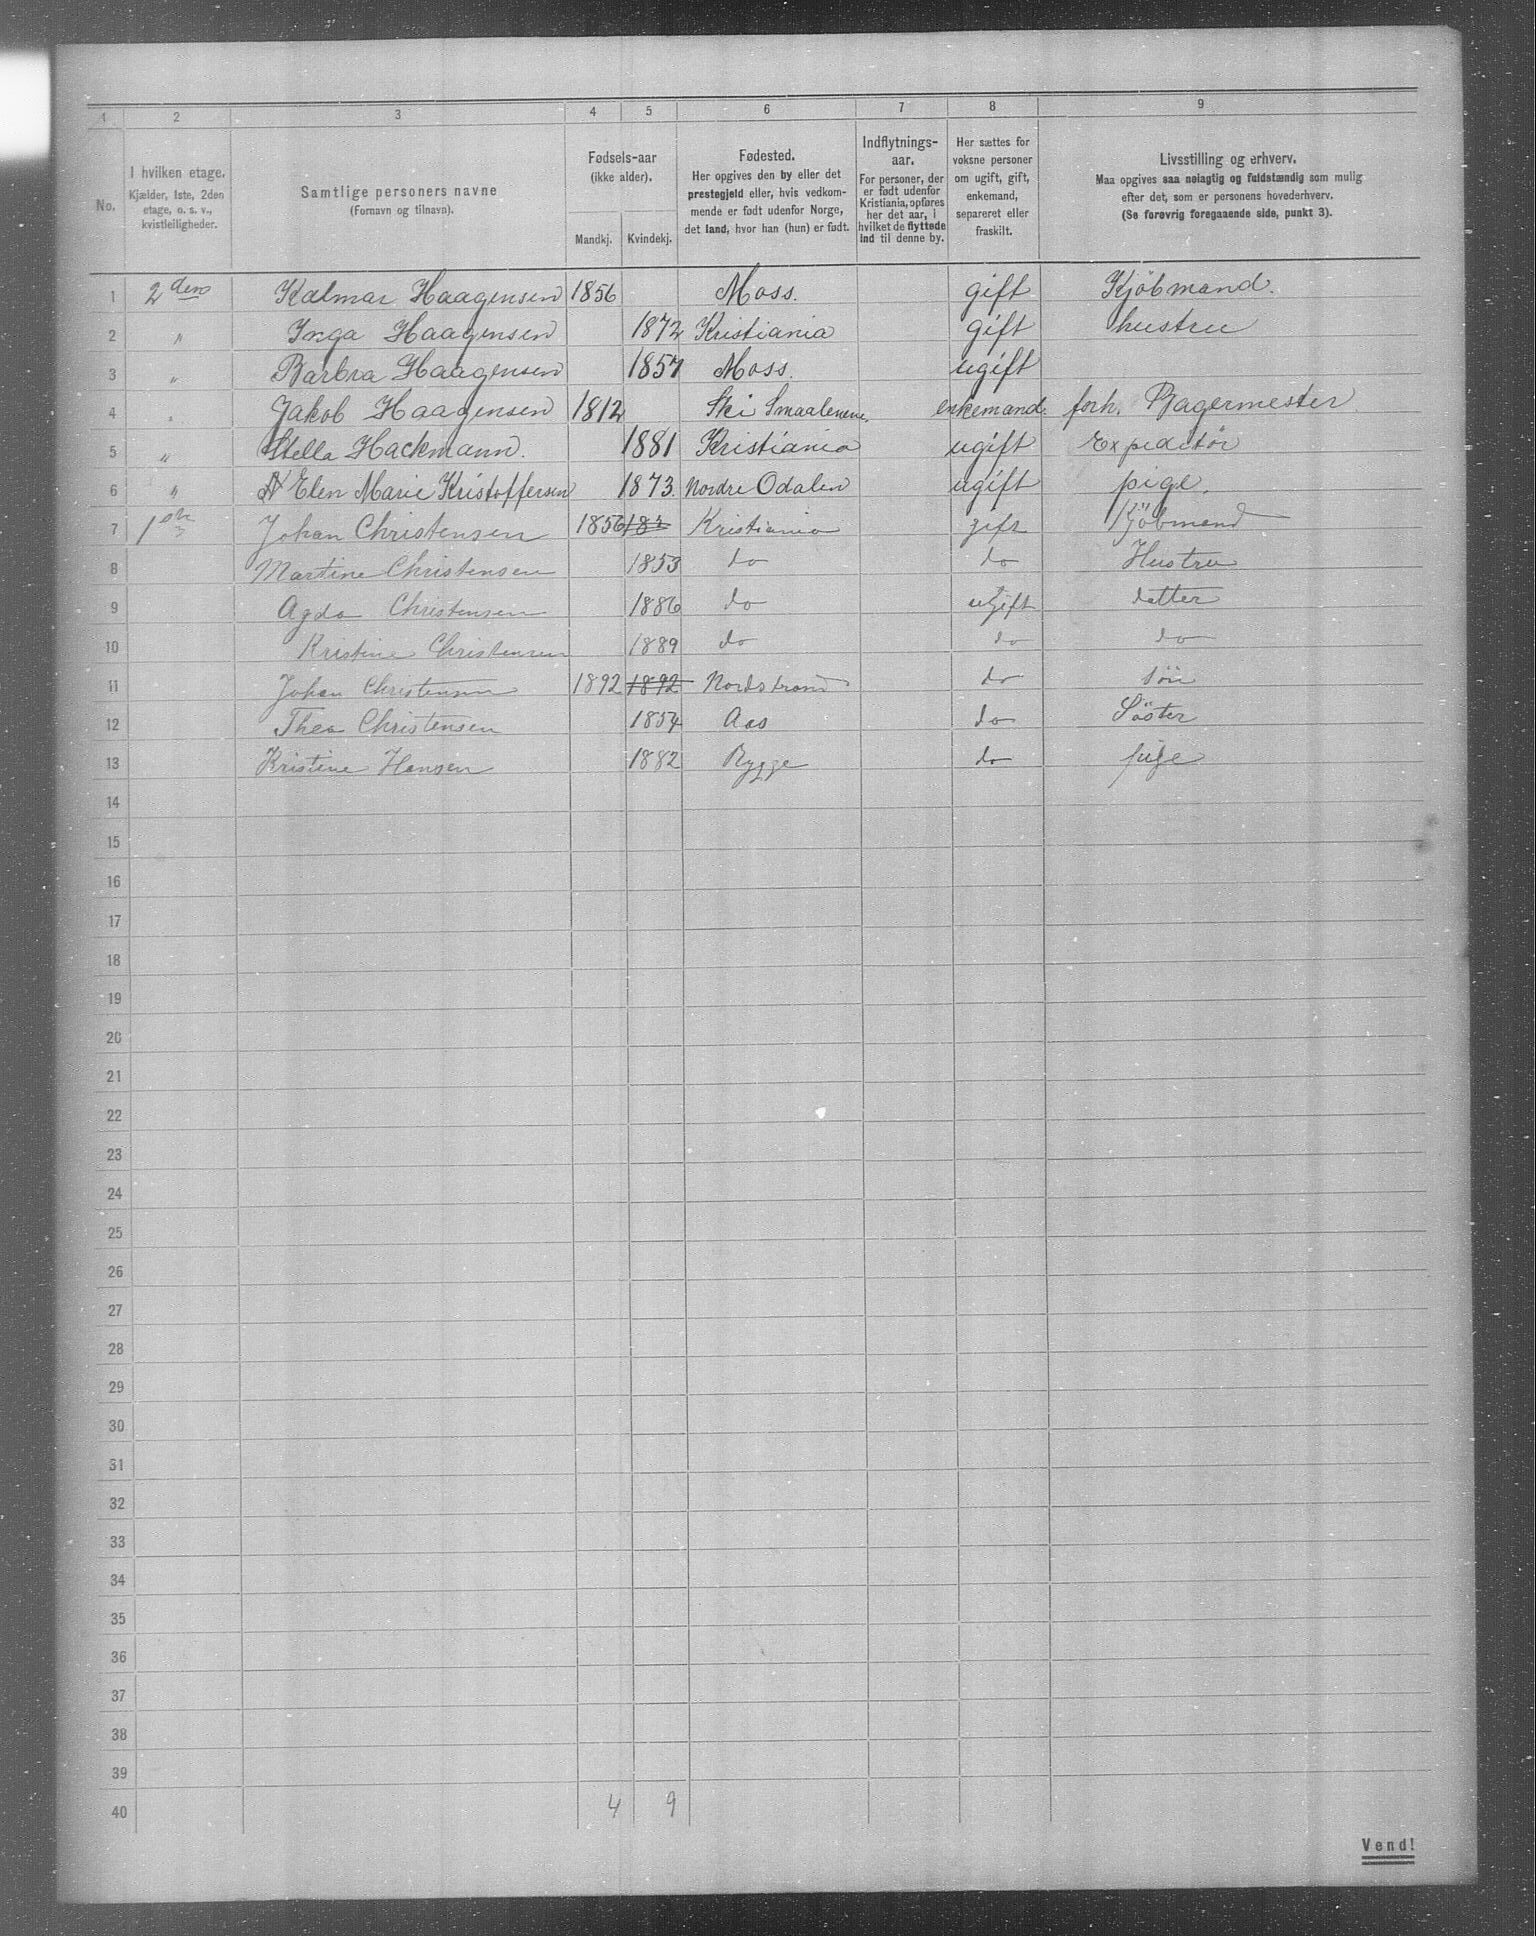 1 2 3 4 5 6 7 8 9
No.
I hvilken etage.
Kjælder, 1ste, 2den
etage, o. s. v.,
kvistleiligheder.
Samtlige personers navne
(Fornavn og tilnavn).
Fødsels-aar
(ikke alder).
Mandkj. Kvindekj.
Fødested.
Her opgives den by eller det
prestegjeld eller, hvis vedkom-
mende er født udenfor Norge,
det land, hvor han (hun) er født.
Indflytnings-
aar.
For personer, der
er født udenfor
Kristiania, opføres
her det aar, i
hvilket de flyttede
ind til denne by.
Her sættes for
voksne personer
om ugift, gift,
enkemand,
separeret eller
fraskilt.
Livsstilling og erhverv.
Maa opgives saa nøiagtig og fuldstændig som mulig
efter det, som er personens hovederhverv.
(Se forøvrig foregaaende side, punkt 3).
1 2den Kalmar Haagensen 1856 Moss. gift Kjöbmand.
2 " Inga Haagensen 1872 Kristiania gift hustru
3 " Barbra Haagensen 1857 Moss. ugift
4 " Jakob Haagensen 1812 Ski Smaalenene. enkemand. forh. Bagermester.
5 " Stella Hackmann. 1881 Kristiania ugift Expeditör
6 " Elen Marie Kristoffersen 1873. Nordre Odalen ugift pige.
7 1ste Johan Christensen 1856 Kristiania gift Kjöbmand
8 Martine Christensen 1853 do do Hustru
9 Agda Christensen 1886 do ugift datter
10 Kristine Christensen 1889 do do do
11 Johan Christensen 1892 1892 Nordstrand do sön
12 Thea Christensen 1854 Aas do Söster
13 Kristine Hansen 1882 Rygge do pige
14
15
16
17
18
19
20
21
22
23
24
25
26
27
28
29
30
31
32
33
34
35
36
37
38
39
40 4 9
Vend!